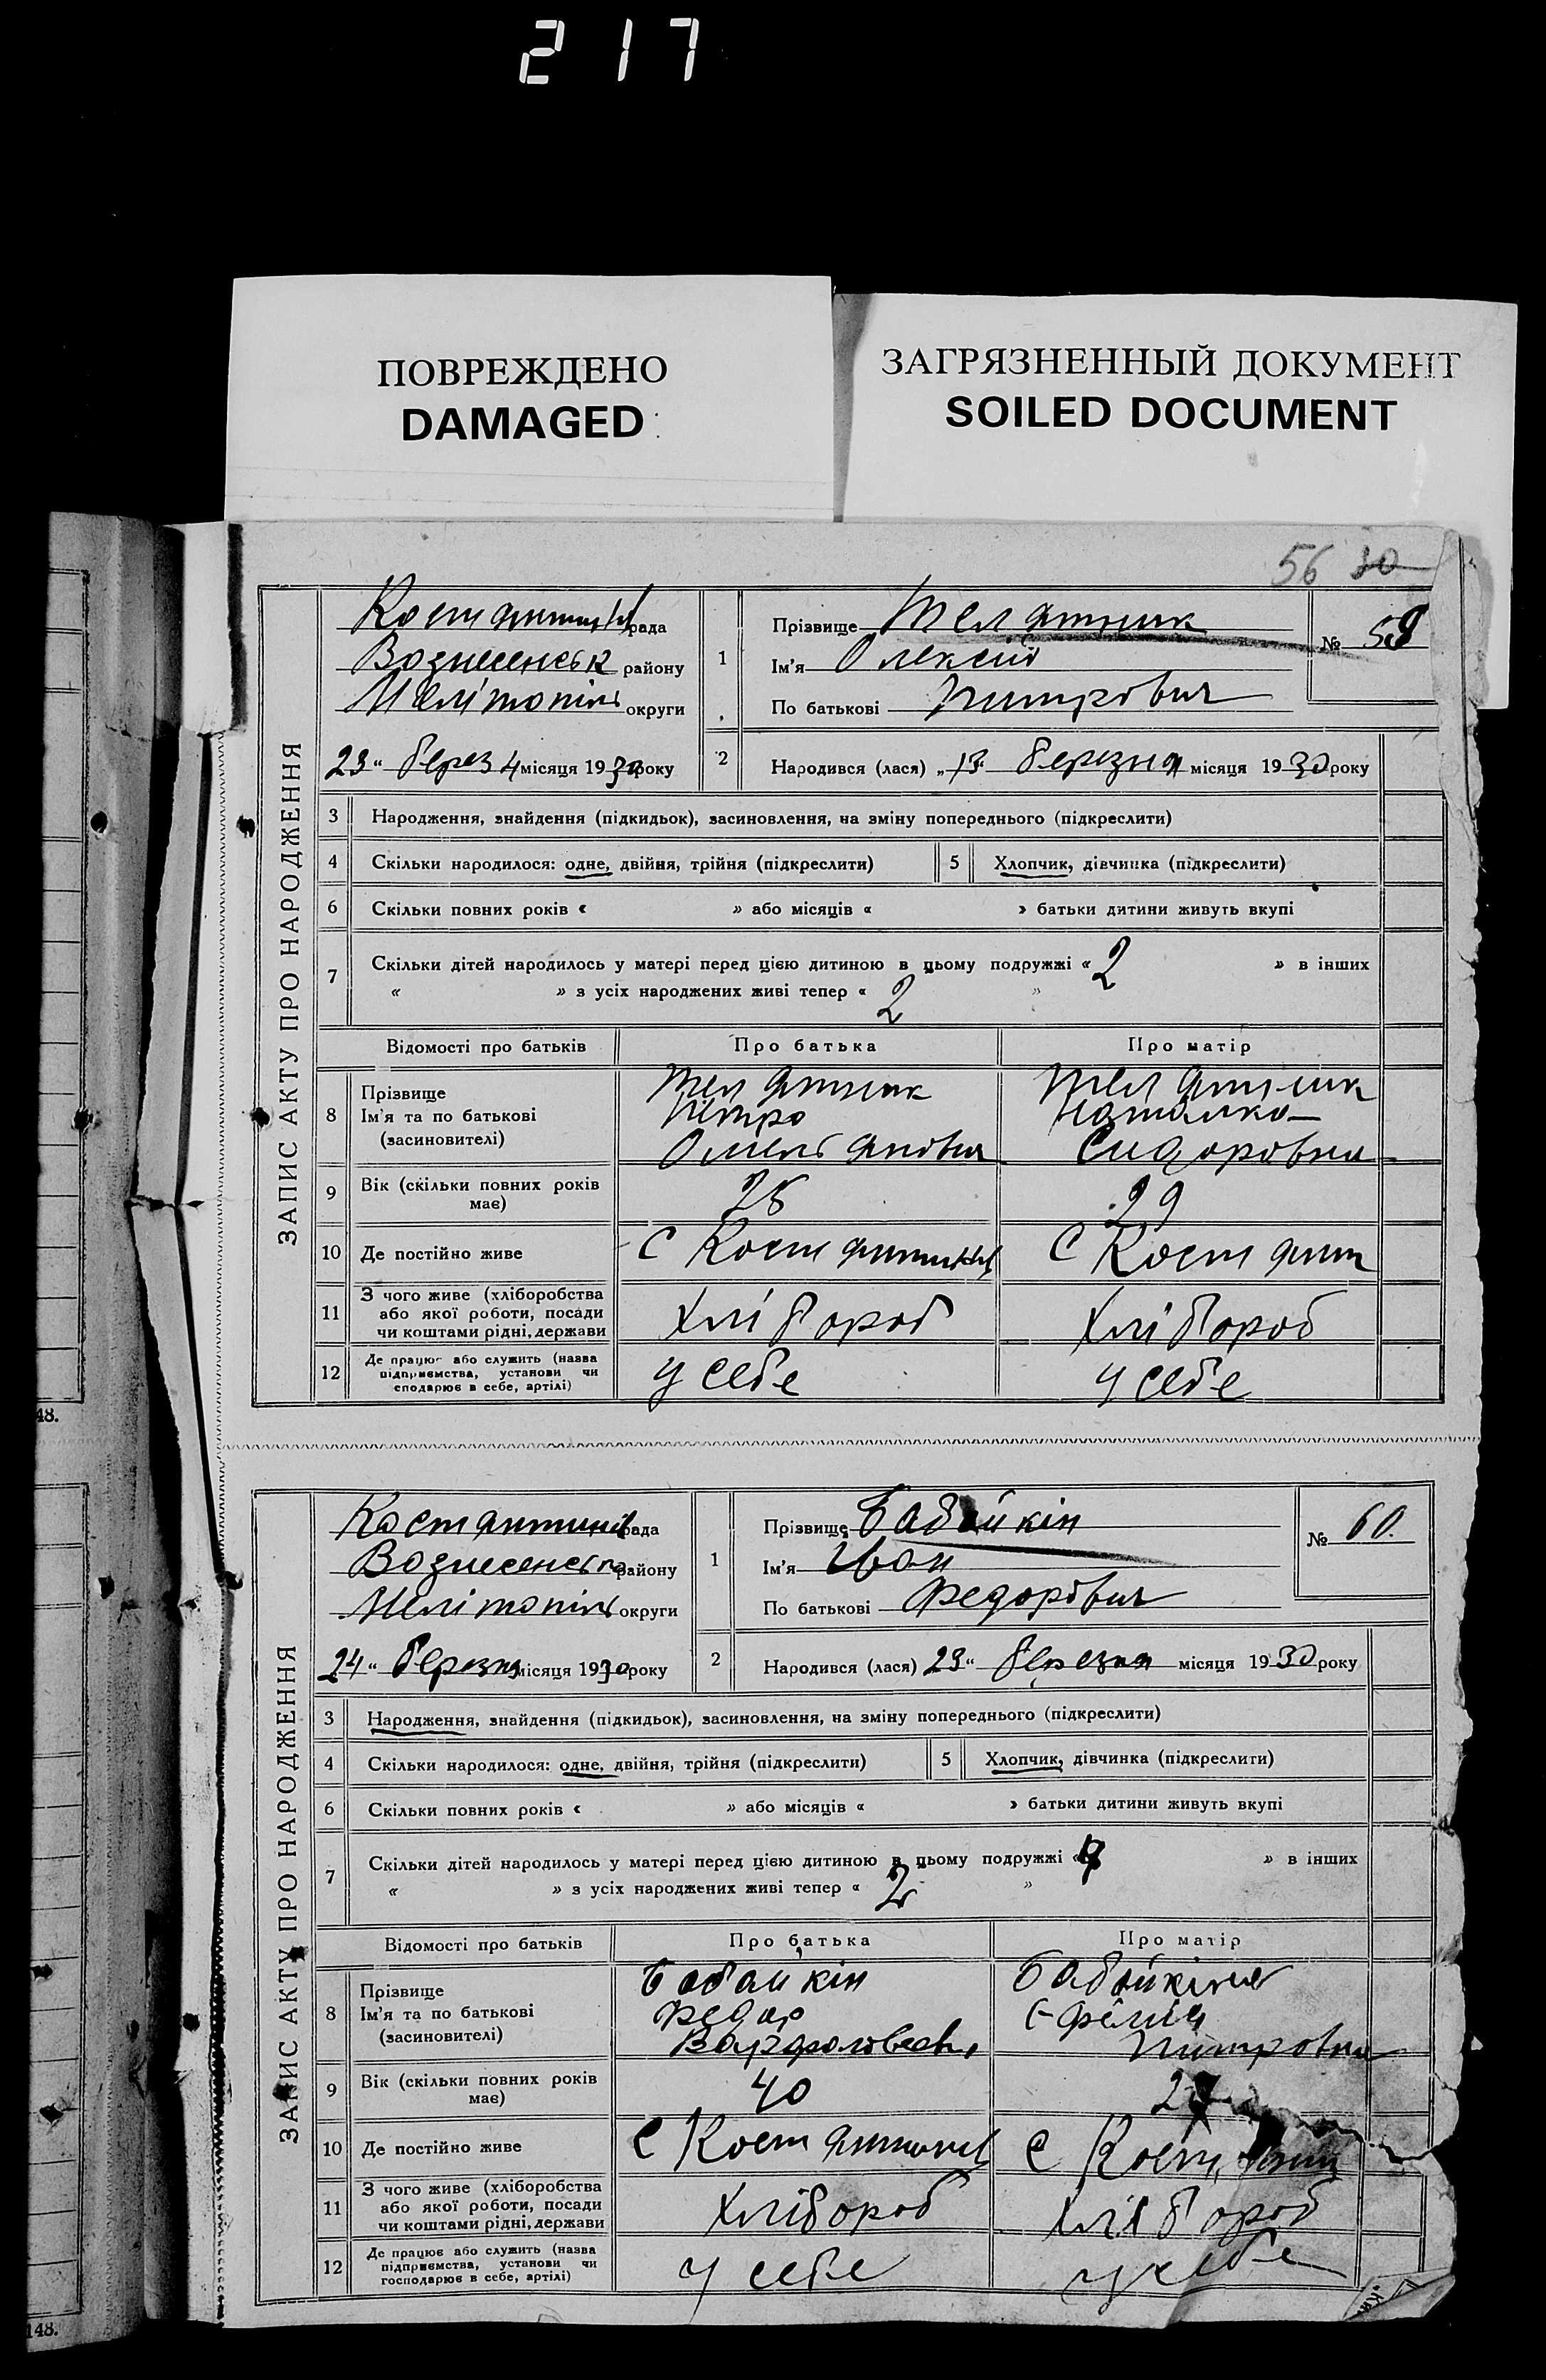 217
ПОВРЕЖДЕНО
DAMAGED
ЗАГРЯЗНЕННЫЙ ДОКУМЕНТ
SOILED DOCUMENT
56 30
ЗАПИС АКТУ ПРО НАРОДЖЕННЯ
рада
Вознесенськ району
Мелітопіль округи
23 " берез місяця 1930 року
1
Прізвище Телятник
Ім'я Олексій
По батькові Питрович
№
2
Народився (лася) „ 13 березня місяця 1930 року
3 Народження, знайдення (підкидьок), засиновлення, на зміну попереднього (підкреслити)
4 Скільки народилося: одне, двійня, трійня (підкреслити) 5 Хлопчик, дівчинка (підкреслити)
6 Скільки повних років « » або місяців « » батьки дитини живуть вкупі
7 Скільки дітей народилось у матері перед цією дитиною в цьому подружжі « 2 » в інших
« » з усіх народжених живі тепер « 2 »
Відомості про батьків Про батька Про матір
8 Прізвище Телятник Телятник
Ім'я та по батькові Петро Наталка
(засиновителі) Сидоровна
9 Вік (скільки повних років має) 28 29
10 Де постійно живе С С Костянт
11 З чого живе (хліборобства
або якої роботи, посади
чи коштами рідні, держави Хлібороб Хлібороб
12 Де працює або служить (назва
підприємства, установи чи
сподарює в себе, артілі) у себе у себе
48.
ЗАПИС АКТУ ПРО НАРОДЖЕННЯ
рада
Вознесенськ району
Мелітопіль округи
24 " березня місяця 1930 року
1
Прізвище Бабайкін
Ім'я Іван
По батькові Федорович
№ 60.
2
Народився (лася) 23 " березня місяця 1930 року
3 Народження, знайдення (підкидьок), засиновлення, на зміну попереднього (підкреслити)
4 Скільки народилося: одне, двійня, трійня (підкреслити) 5 Хлопчик, дівчинка (підкреслити)
6 Скільки повних років « » або місяців « » батьки дитини живуть вкупі
7 Скільки дітей народилось у матері перед цією дитиною в цьому подружжі « » в інших
« » з усіх народжених живі тепер « 2 »
Відомості про батьків Про батька Про матір
8 Прізвище Бабайкін Бабайкіна
Ім'я та по батькові Федор
(засиновителі) Питровна
9 Вік (скільки повних років має) 40
10 Де постійно живе С С
11 З чого живе (хліборобства
або якої роботи, посади
чи коштами рідні, держави Хлібороб Хлібороб
12 Де працює або служить (назва
підприємства, установи чи
господарює в себе, артілі) у себе у себе
148.